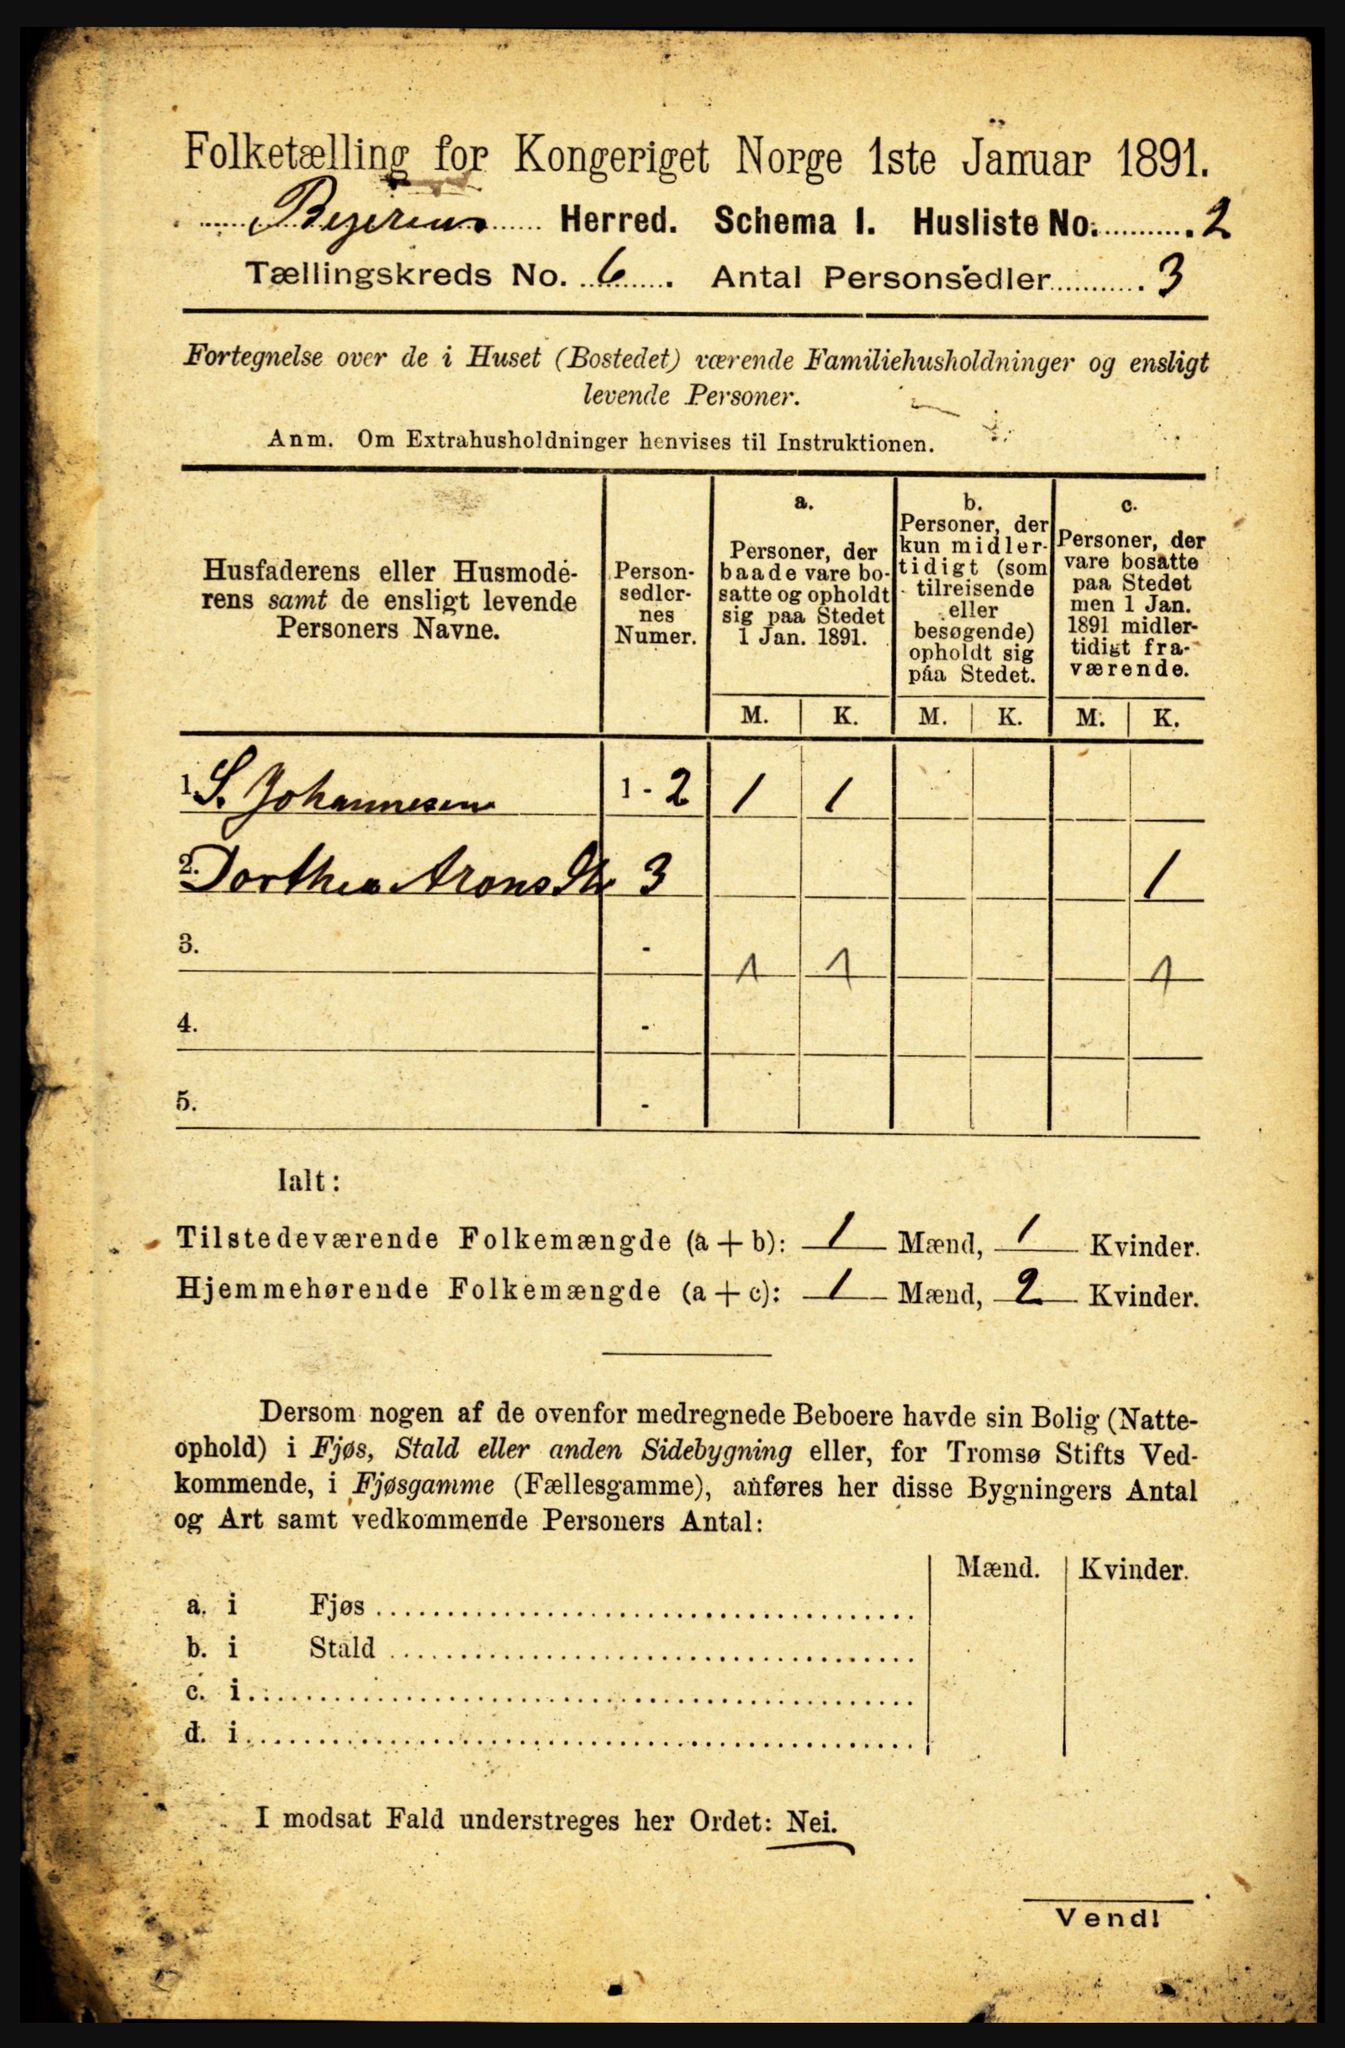 Folketælling for Kongeriget Norge 1ste Januar 1891.
Bejeren Herred. Schema I. Husliste No. 2
Tællingskreds No. 6. Antal Personsedler 3
Fortegnelse over de i Huset (Bostedet) værende Familiehusholdninger og ensligt
levende Personer.
Anm. Om Extrahusholdninger henvises til Instruktionen.
Husfaderens eller Husmode-
rens samt de ensligt levende
Personers Navne.
Person-
sedler-
nes
Numer.
a.
Personer, der
baade vare bo-
satte og opholdt
sig paa Stedet
1 Jan. 1891.
b.
Personer, der
kun midler-
tidigt (som
tilreisende
eller
besøgende)
opholdt sig
paa Stedet.
c.
Personer, der
vare bosatte
paa Stedet
men 1 Jan.
1891 midler-
tidigt fra-
værende.
M. K. M. K. M. K.
1. S. Johannesen 1 - 2 1 1
2. Dorthea Arons 3 1
3. - 1 1 1
4. -
5. -
Ialt:
Tilstedeværende Folkemængde (a + b): 1 Mænd, 1 Kvinder.
Hjemmehørende Folkemængde (a + c): 1 Mænd, 2 Kvinder.
Dersom nogen af de ovenfor medregnede Beboere havde sin Bolig (Natte-
ophold) i Fjøs, Stald eller anden Sidebygning eller, for Tromsø Stifts Ved-
kommende, i Fjøsgamme (Fællesgamme), anføres her disse Bygningers Antal
og Art samt vedkommende Personers Antal:
Mænd. Kvinder.
a. i Fjøs
b. i Stald
c. i
d. i
I modsat Fald understreges her Ordet: Nei.
Vend!